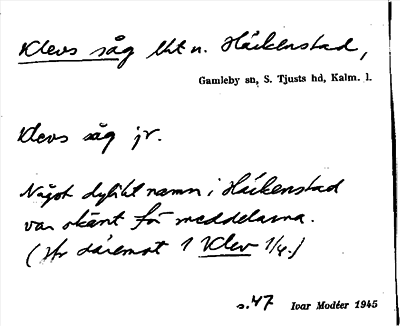 Klevs såg lht n. Häckenstad,
Gamleby sn, S. Tjusts hd, Kalm. l.
Klevs såg jr.
Något dylikt namn i Häckenstad
var okänt för meddelarna.
(Jfr däremot 1 Klev 1/4.)
s. 47 Ivar Modéer 1945